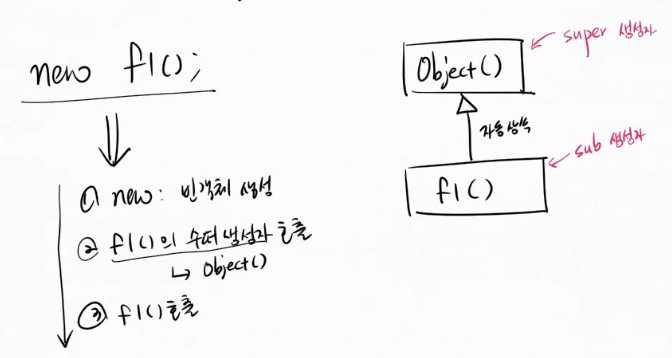 new f1();
① new: 빈객체 생성
② f1()의 수퍼 생성자 호출
↳ Object()
③ f1() 호출
Object()
super 생성자
자동상속
f1()
sub 생성자